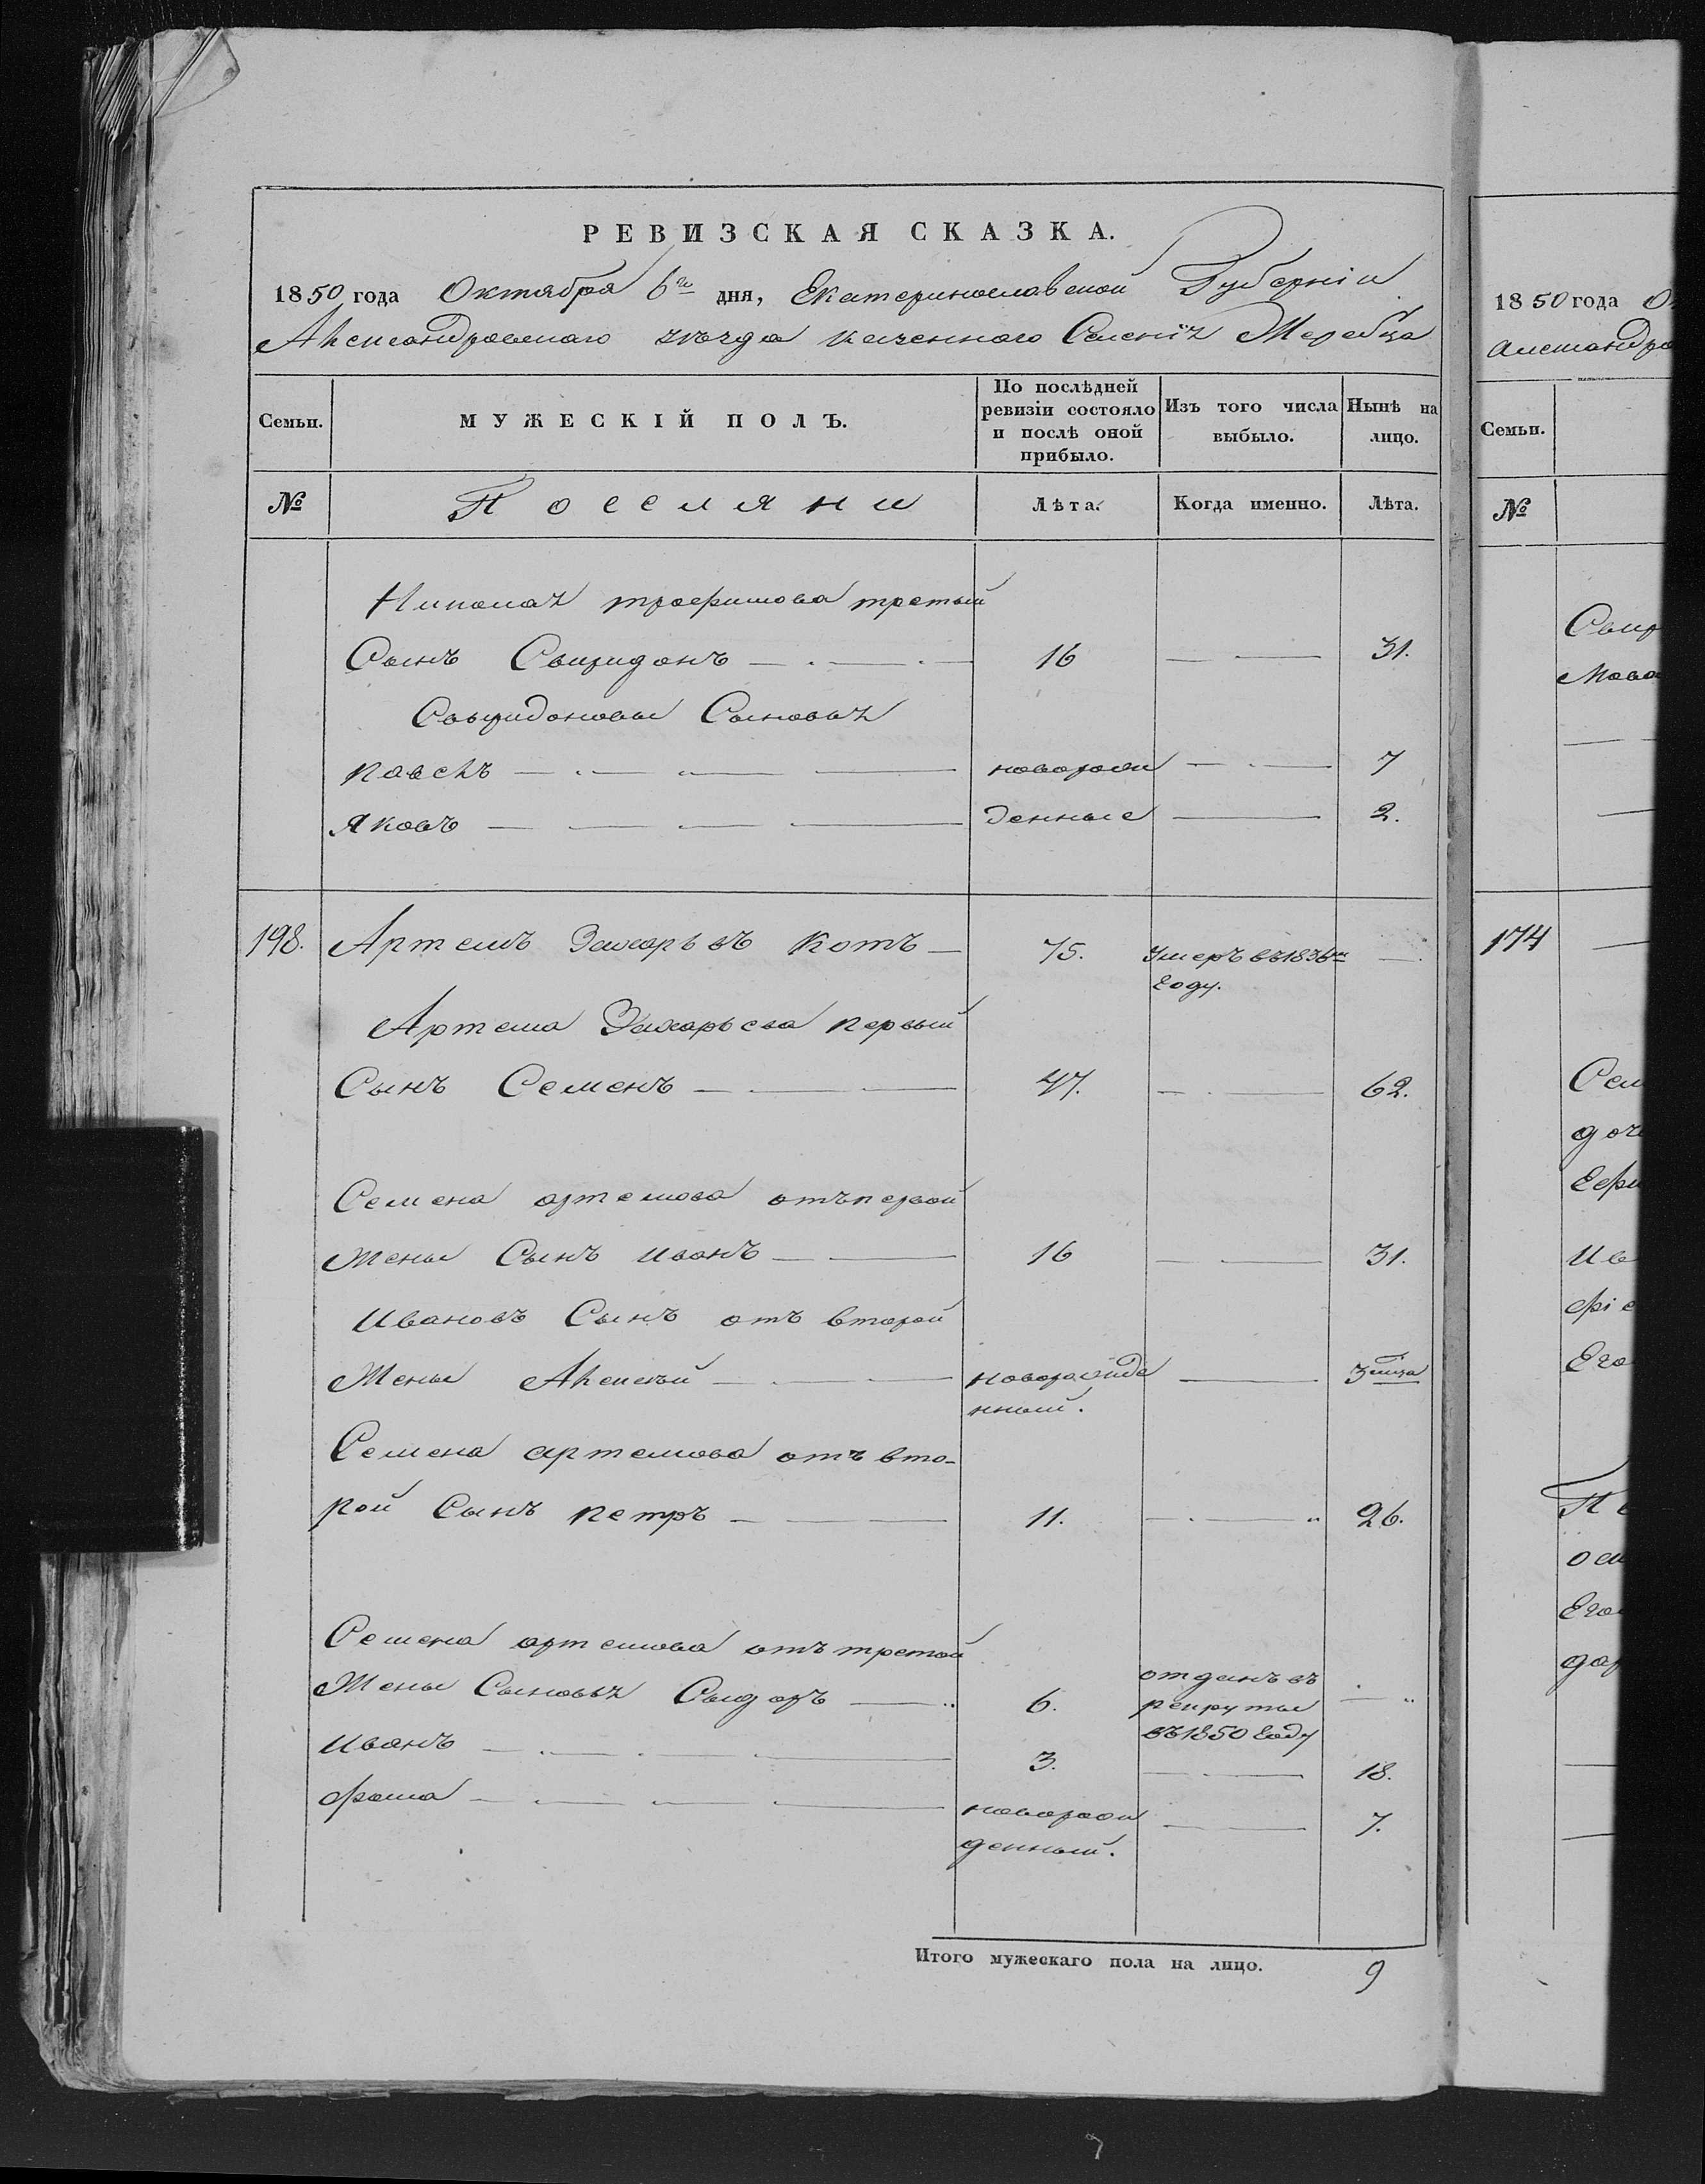 РЕВИЗСКАЯ СКАЗКА.
1850 года Октября 6го дня, Екатеринославской Губерніи
Александровскаго уѣзда казенного Селенія Жеребца
Семьи. МУЖЕСКІЙ ПОЛЪ. По послѣдней ревизіи состояло и послѣ оной прибыло. Изъ того числа выбыло. Нынѣ на лицо.
№ Поселяни Лѣта. Когда именно. Лѣта.
Николая трофимова третый
Сынъ Свиридонъ 16 31.
Свиридоновы Сыновья
Павелъ новорож 7
Яковъ денные 2.
198. Артемъ Захарьвъ Котъ 75. Умеръ въ 1836м
Году.
Артема Захарьева первый
Сынъ Семенъ 47. 62.
Семена артемова отъ первой
Жены Сынъ Иванъ 16 31.
Ивановъ Сынъ отъ второй
Жены Алексѣй новорожде 3 мца
нный.
Семена артемова отъ вто-
рой Сынъ Петръ 11. 26.
Семена артемова отъ третой
Жены Сыновья Сидоръ 6. отданъ въ
рекруты
въ 1850 Году
Иванъ 3. 18.
Фома новорож 7.
денный.
Итого мужескаго пола на лицо. 9
1850 года О
Александро
Семьи.
№
Свир
мова
174
Сем
доч
Ефи
Ив
фіе
Его
Пе
Его
дар